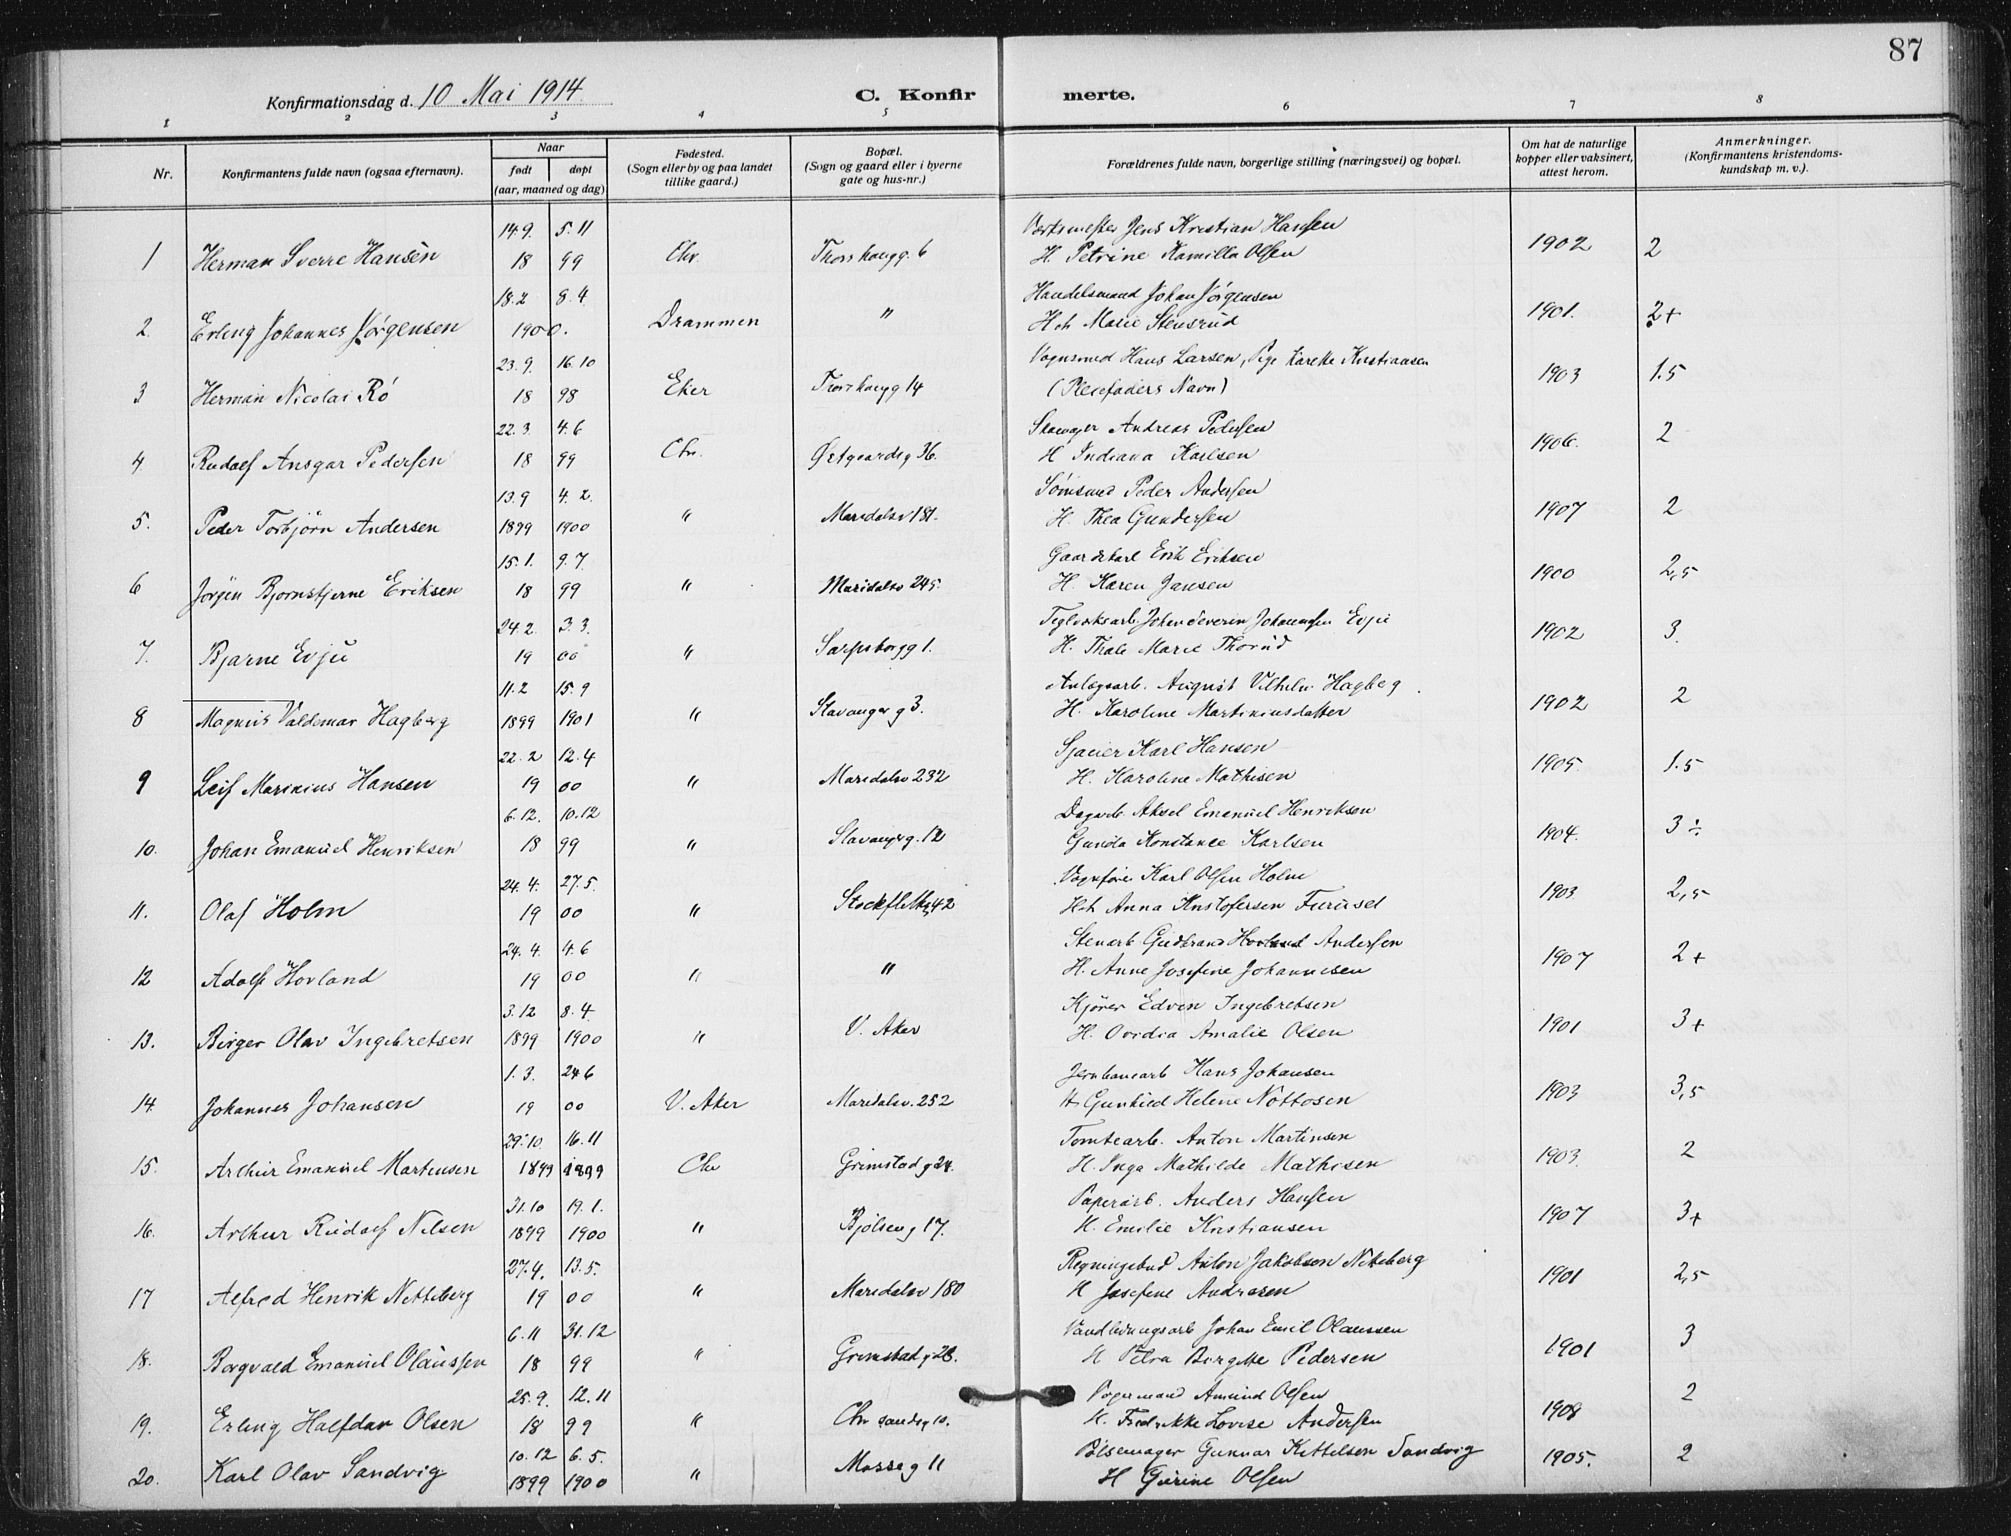 87
Konfirmationsdag d. 10 Mai 1914. C. Konfirmerte.
1 2 3 4 5 6 7 8
Nr. Konfirmantens fulde navn (ogsaa efternavn). Naar født døpt (aar, maaned og dag) Fødested. (Sogn eller by og paa landet tillike gaard.) Bopæl. (Sogn og gaard eller i byerne gate og hus-nr.) Forældrenes fulde navn, borgerlige stilling (næringsvei) og bopæl. Om hat de naturlige kopper eller vaksinert, attest herom. Anmerkninger. (Konfirmantens kristendoms-kundskap m. v.).
14.9. 5.11 Jens Kristian Hansen
1 Herman Sverre Hansen 18 99 Chr. 6 H. Petrine Kamilla Olsen 1902 2
18.2 8.4. Handelsmand Johan Jörgensen
2. Erling Johannes Jörgensen 1900. Drammen " H.t. Marie Stensrud 1901. 2+
23.9. 16.10 Vognsmed Hans Larsen, Pige Karette Kristiansen
3 Herman Nicolai Rö 18 98 Eker 14 (Pleiefaders Navn) 1903 1.5
22.3. 4.6 Skomager Andreas Pedersen
4 Rudolf Ansgar Pedersen 18 99 Chr. Østgaardsg 36. H Indiana Karlsen 1906. 2
13.9 4.2. Peder Andersen
5. Peder Torbjörn Andersen 1899 1900 " Maridalsv 181. H. Thea Gundersen 1907 2
15.1. 9.7. Gaardskarl Erik Eriksen
6 Jörgen Bjørnstjerne Eriksen 18 99 " Maridalsv 245. H. Karen Jansen 1900 2,5
24.2. 3.3. Teglverksarb. Johan Severin Johannesen Evju
7. Bjarne Evju 19 00 " Sarpsborgg 1. H. Thale Marie Thorud 1902 3.
11.2 15.9 Anlægsarb. August Vilhelm Hagberg.
8 Magnus Valdemar Hagberg 1899 1901 " Stavangerg 3. H. Karoline Martiniusdatter 1902 2
22.2 12.4 Karl Hansen
9 Leif Marinius Hansen 19 00 " Maridalsv 232 H. Karoline Mathisen 1905. 1.5
6.12. 10.12 Dagarb. Aksel Emanuel Henriksen
10. Johan Emanuel Henriksen 18 99 " Stavangerg. 12 Gunda Konstance Karlsen 1904. 3 ÷
24.4. 27.5. Karl Olsen Holm
11. Olaf Holm 19 00 " Stockfletg 42 H.t. Anna Kristofersen Furuset 1903 2,5
24.4. 4.6 Stenarb Gudbrand Hovland Andersen
12 Adolf Hovland 19 00 " " H. Anne Josefine Johannesen 1907 2+
3.12 8.4. Kjörer Edvin Ingebretsen
13. Birger Olav Ingebretsen 1899 1900 " V. Aker H. Ovidia Amalie Olsen 1901 3+
1.3. 24.6 Jernbanearb Hans Johansen
14. Johannes Johansen 19 00 V. Aker Maridalsv. 252 H Gunhild Helene Nottosen 1903 3,5
29.10. 16.11 Tomtearb. Anton Martinsen
15. Arthur Emanuel Martinsen 1899 1899 Chr Grimstadg 24. H. Inga Mathilde Mathisen 1903. 2
31.10 19.1. Papirarb. Anders Hansen
16. Arthur Rudolf Nilsen 1899 1900 " Bjølseng 17. H. Emilie Kristiansen 1907 3+
27.4. 13.5. Regningsbud Anton Jakobson Nitteberg
17 Alfred Henrik Nitteberg 19 00 " Maridalsv 180 H Josefine Andresen 1901 2,5
6.11 31.12 Vandledningsarb Johan Emil Olaussen
18. Borgvald Emanuel Olaussen 18 99 " Grimstadg 28. H Petra Birgitte Pedersen 1901 3
25.9. 12.11 Amund Olsen 2
19. Erling Halfdan Olsen 18 99 " Chr sandsg 10. H. Fredrikke Lovise Andersen 1908
10.12 6.5. Pölsemager Gunnar Kittelsen Sandvig
20. Karl Olav Sandvig 1899 1900 " Mosseg 11 H Gurine Olsen 1905. 2